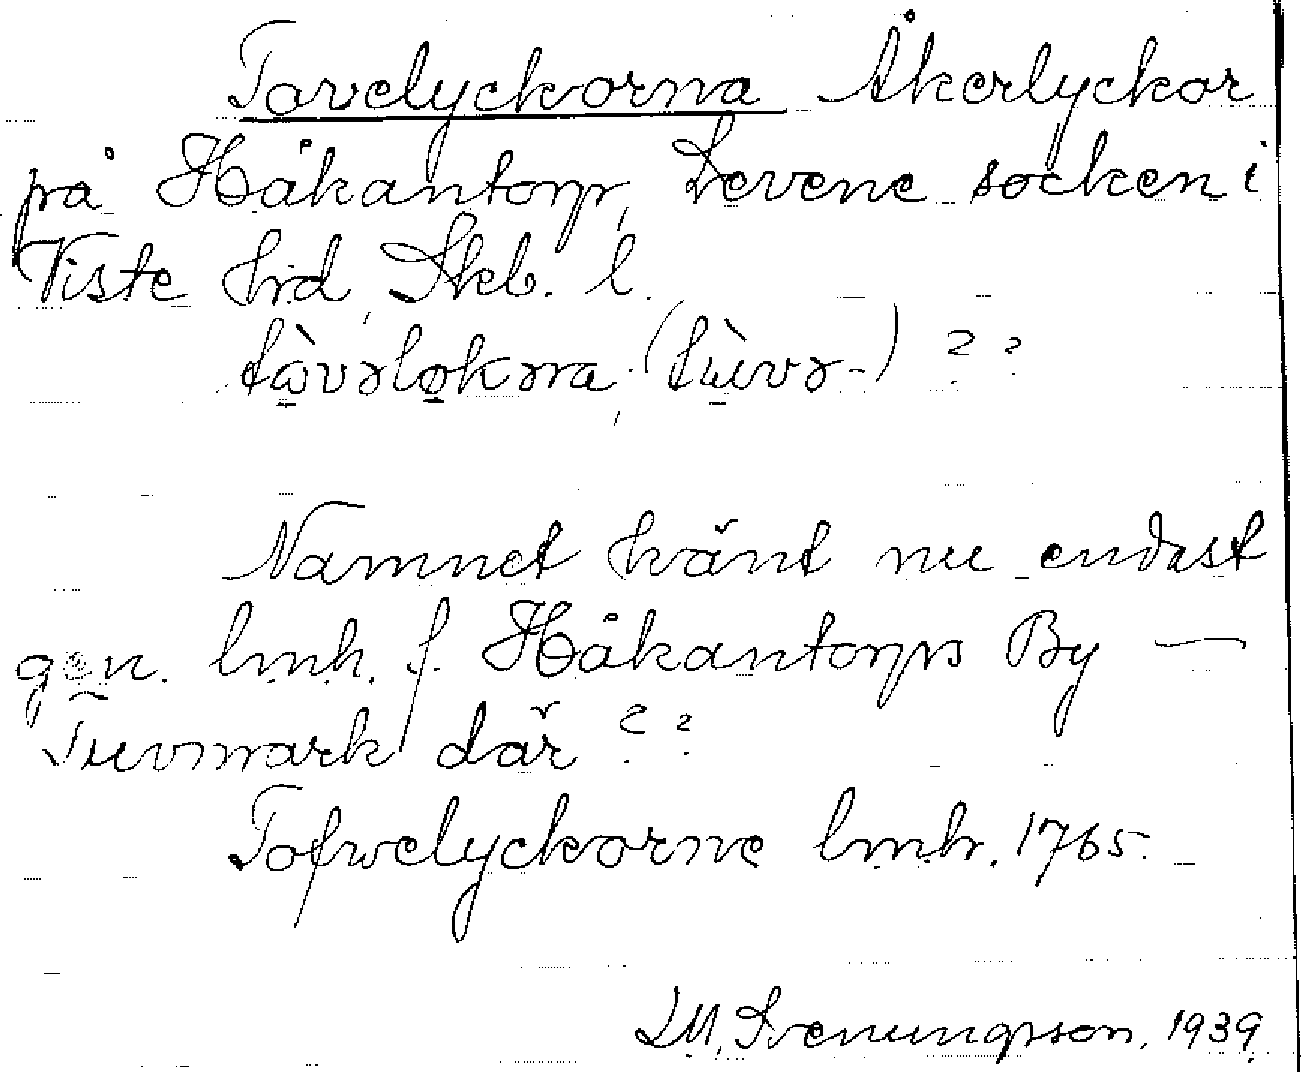 Tovelyckorna Åkerlyckor
på Håkantorp, Levene socken i
Viste hrd, Skb. l.
tòvəløkɳa, (tùvə-) ? ?
Namnet känt nu endast
gen. lmh. f. Håkantorps By —
Tuvmark där ? ?
Tofwelyckorne lmh. 1765.
LM, Svenungsson, 1939